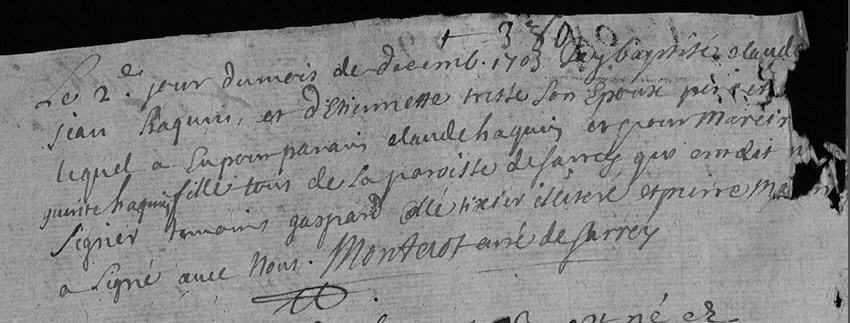 380
Le 2e. jour du mois de decemb. 1703 J'ay baptisé claude
jean haquin, et d'Etiennette son Epouse
lequel a Eu pour parain claude haquin et pour Marein
haquin fille tous de la paroisse de Sarrey qui ont dit
signer temoins gaspard tixier illiteré et pierre
a signé avec Nous. Monterot curé de Sarrey
né et